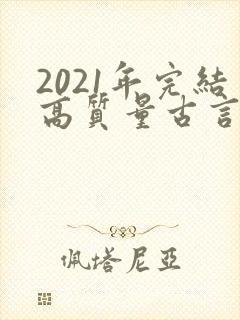 2021年完結
高質量古言
佩塔尼亞